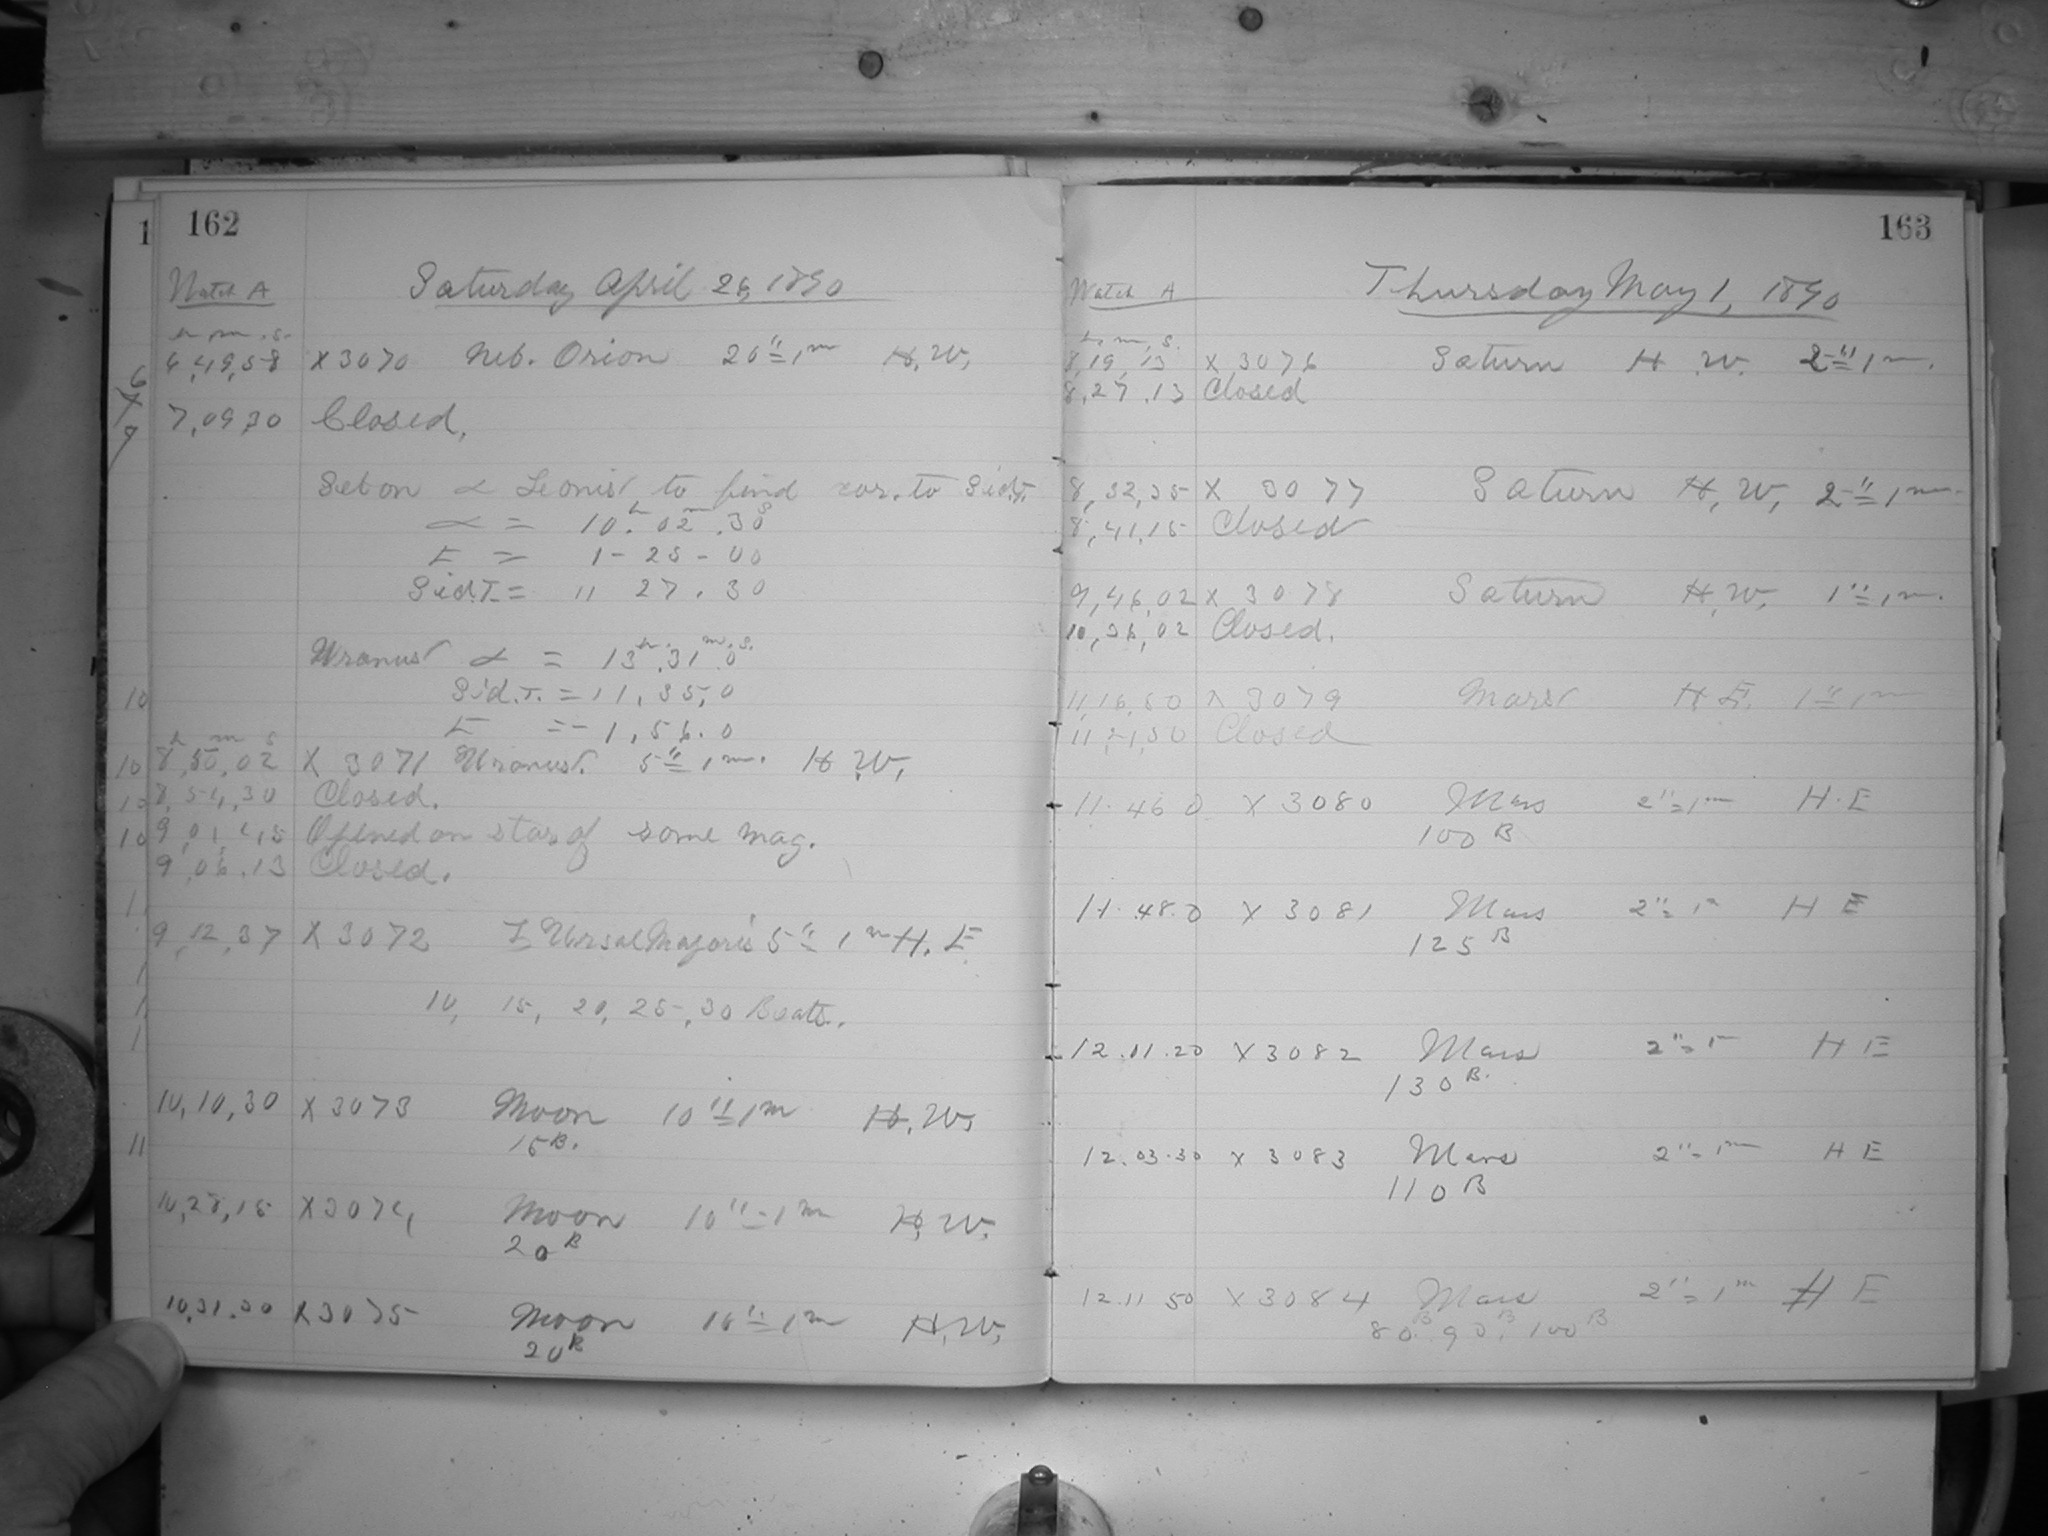 162
Watch A Saturday April 26, 1890
h m s
6,49,58 X 3070 Neb. Orion 20"=1m H.W.
7,09,30 Closed.
Set on α Leonis to find cor. to Sid.T.
α = 10h.02m.30s
E = 1-25-00
Sid.T. = 11 27.30
Uranus α = 13h.31m.0s.
Sid.T. = 11,35,0
E = -1,56.0
h m s
8,50,02 X 3071 Uranus. 5"=1m. H.W.
8,54,30 Closed.
9,01,45 Opened on star of same mag.
9,06.13 Closed.
9,12,37 X 3072 ξ Ursae Majoris 5"=1m H.E
10, 15, 20, 25, 30 Beats.
10,10,30 X 3073 Moon 10"=1m H.W.
15B.
10,28,15 X 3074 Moon 10"=1m H.W.
20B
10,31.30 X 3075 Moon 10"=1m H.W.
20B
163
Watch A Thursday May 1, 1890
h. m. s.
8,19,13 X 3076 Saturn H.W. 2"=1m.
8,27.13 Closed
8,32,25 X 3077 Saturn H.W. 2"=1m
8,41,15 Closed
9,46,02 X 3078 Saturn H.W. 1"=1m.
10,36,02 Closed.
11,16,50 X 3079 Mars H.E. 1"=1m
11,21,50 Closed
11.46 0 X 3080 Mars 2"=1m H.E
100 B
11.48.0 X 3081 Mars 2"=1m H E
125 B
12.01.20 X 3082 Mars 2"=1m H E
130 B.
12.03.30 X 3083 Mars 2"=1m H E
110 B
12.11 50 X 3084 Mars 2"=1m H E
80B. 90B. 100B